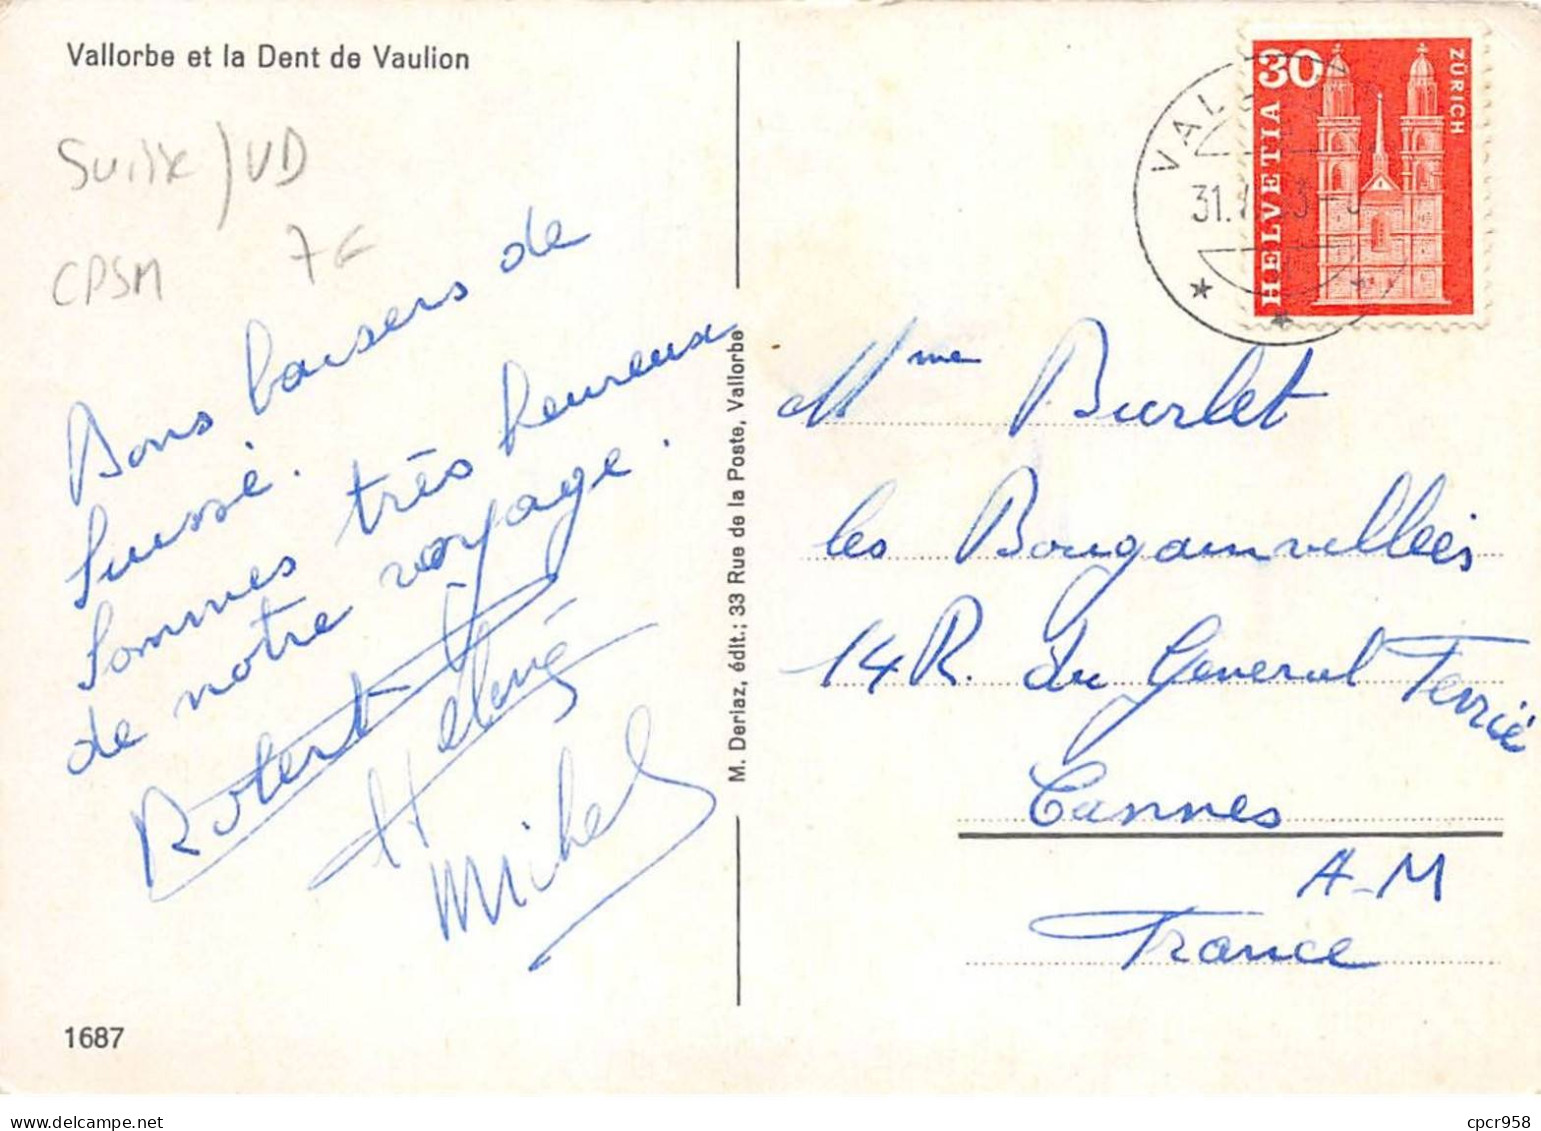 Vallorbe et la Dent de Vaulion
Suisse / VD
CPSM
7€
Bons baisers de
Suisse.
Sommes très heureux
de notre voyage.
Robert
Hélène
Michel
1687
M. Deriaz, édit.; 33 Rue de la Poste, Vallorbe
30
HELVETIA
ZÜRICH
31.
Mme Burlet
les Bougainvillées
14 R. du Général Ferrié
Cannes
A-M
France
cpcr958